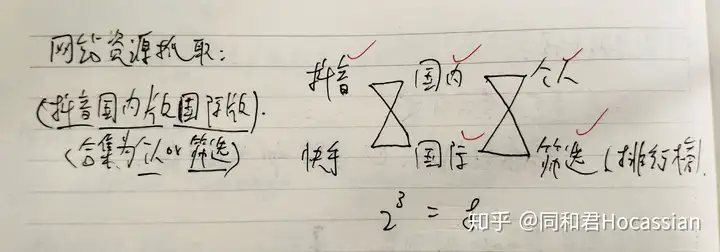 网站资源抓取:
(抖音国内版国际版).
(合集为个人or筛选)
抖音 国内 个人
快手 国际 筛选(排行榜).
2³ = 8
知乎 @同和君Hocassian